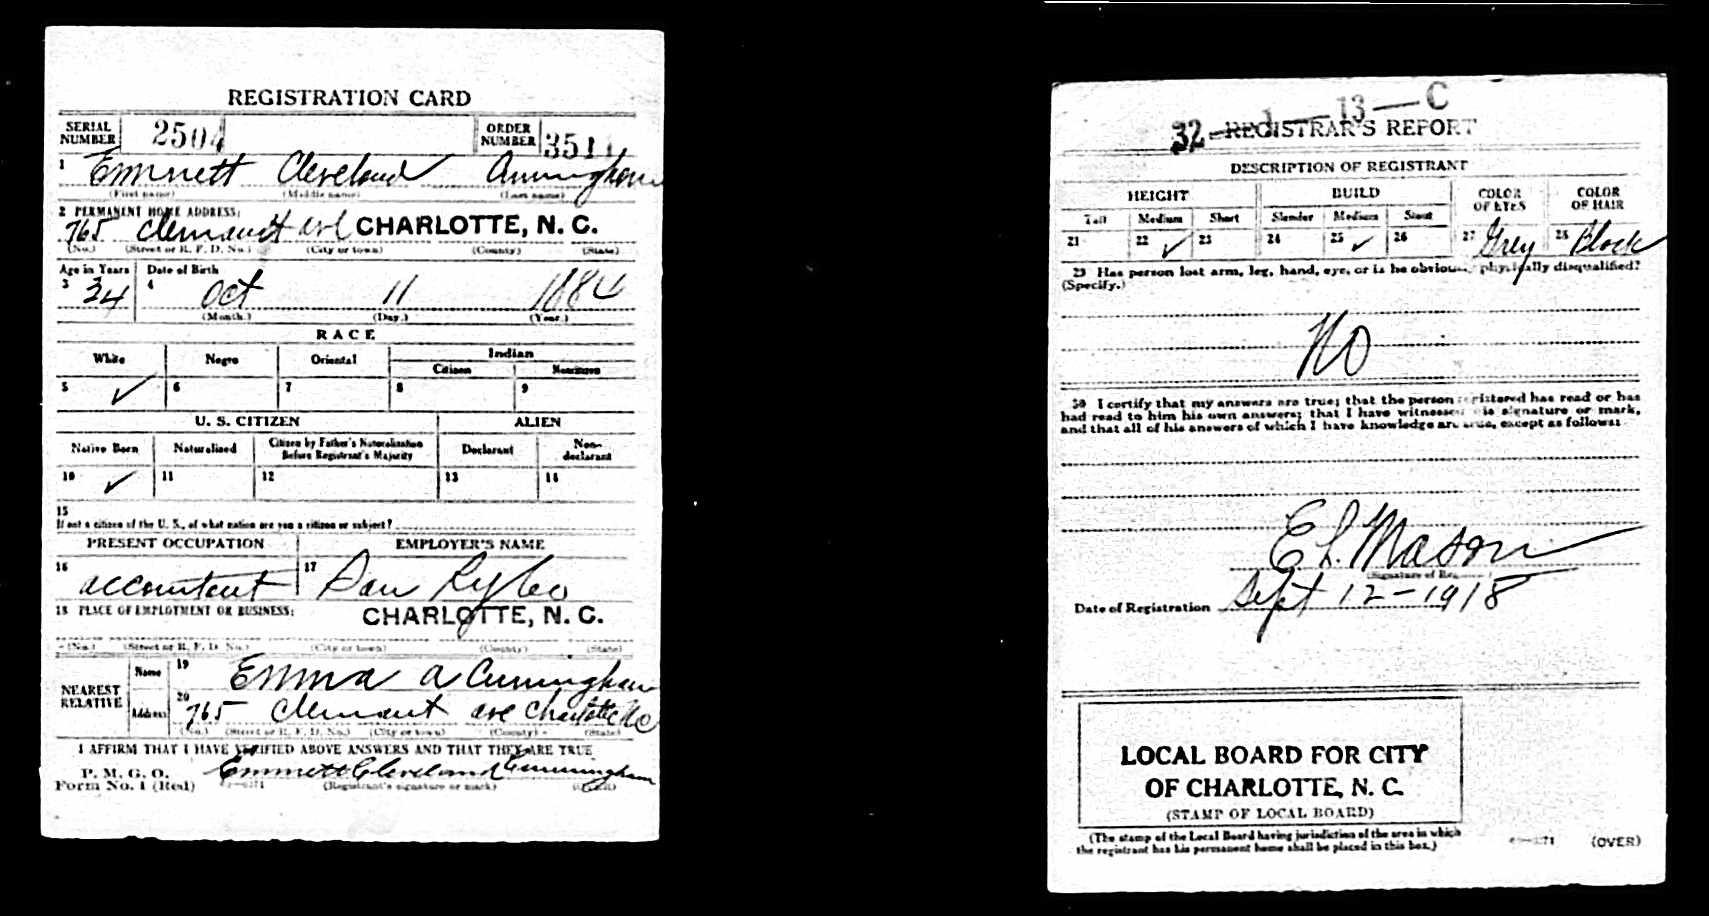 REGISTRATION CARD
SERIAL NUMBER 2504 ORDER NUMBER 3511
1 Emmett Cleveland Cunningham
(First name) (Middle name) (Last name)
2 PERMANENT HOME ADDRESS:
765 Clemant ave CHARLOTTE, N. C.
(No.) (Street or R. F. D. No.) (City or town) (County) (State)
Age in Years Date of Birth
3 34 4 Oct 11 1884
(Month.) (Day.) (Year.)
RACE
White Negro Oriental Indian
Citizen Noncitizen
5 ✓ 6 7 8 9
U. S. CITIZEN ALIEN
Native Born Naturalized Citizen by Father's Naturalization Before Registrant's Majority Declarant Non-declarant
10 ✓ 11 12 13 14
15
If not a citizen of the U. S., of what nation are you a citizen or subject?
PRESENT OCCUPATION EMPLOYER'S NAME
16 accountant 17
18 PLACE OF EMPLOYMENT OR BUSINESS:
CHARLOTTE, N. C.
(No.) (Street or R. F. D. No.) (City or town) (County) (State)
NEAREST RELATIVE Name 19 Emma A Cunningham
Address 20 765 Clemant ave Charlotte NC
(No.) (Street or R. F. D. No.) (City or town) (County) (State)
I AFFIRM THAT I HAVE VERIFIED ABOVE ANSWERS AND THAT THEY ARE TRUE
P. M. G. O.
Form No. 1 (Red) Emmett Cleveland Cunningham
(Registrant's signature or mark) (OVER)
32 — 1 — 13 — C
REGISTRAR'S REPORT
DESCRIPTION OF REGISTRANT
HEIGHT BUILD COLOR OF EYES COLOR OF HAIR
Tall Medium Short Slender Medium Stout
21 22 ✓ 23 24 25 ✓ 26 27 Grey 28 Black
29 Has person lost arm, leg, hand, eye, or is he obviously physically disqualified?
(Specify.)
No
30 I certify that my answers are true; that the person registered has read or has
had read to him his own answers; that I have witnessed his signature or mark,
and that all of his answers of which I have knowledge are true, except as follows:
E L Mason
(Signature of Reg
Date of Registration Sept 12-1918
LOCAL BOARD FOR CITY
OF CHARLOTTE, N. C.
(STAMP OF LOCAL BOARD)
(The stamp of the Local Board having jurisdiction of the area in which
the registrant has his permanent home shall be placed in this box.)
(OVER)